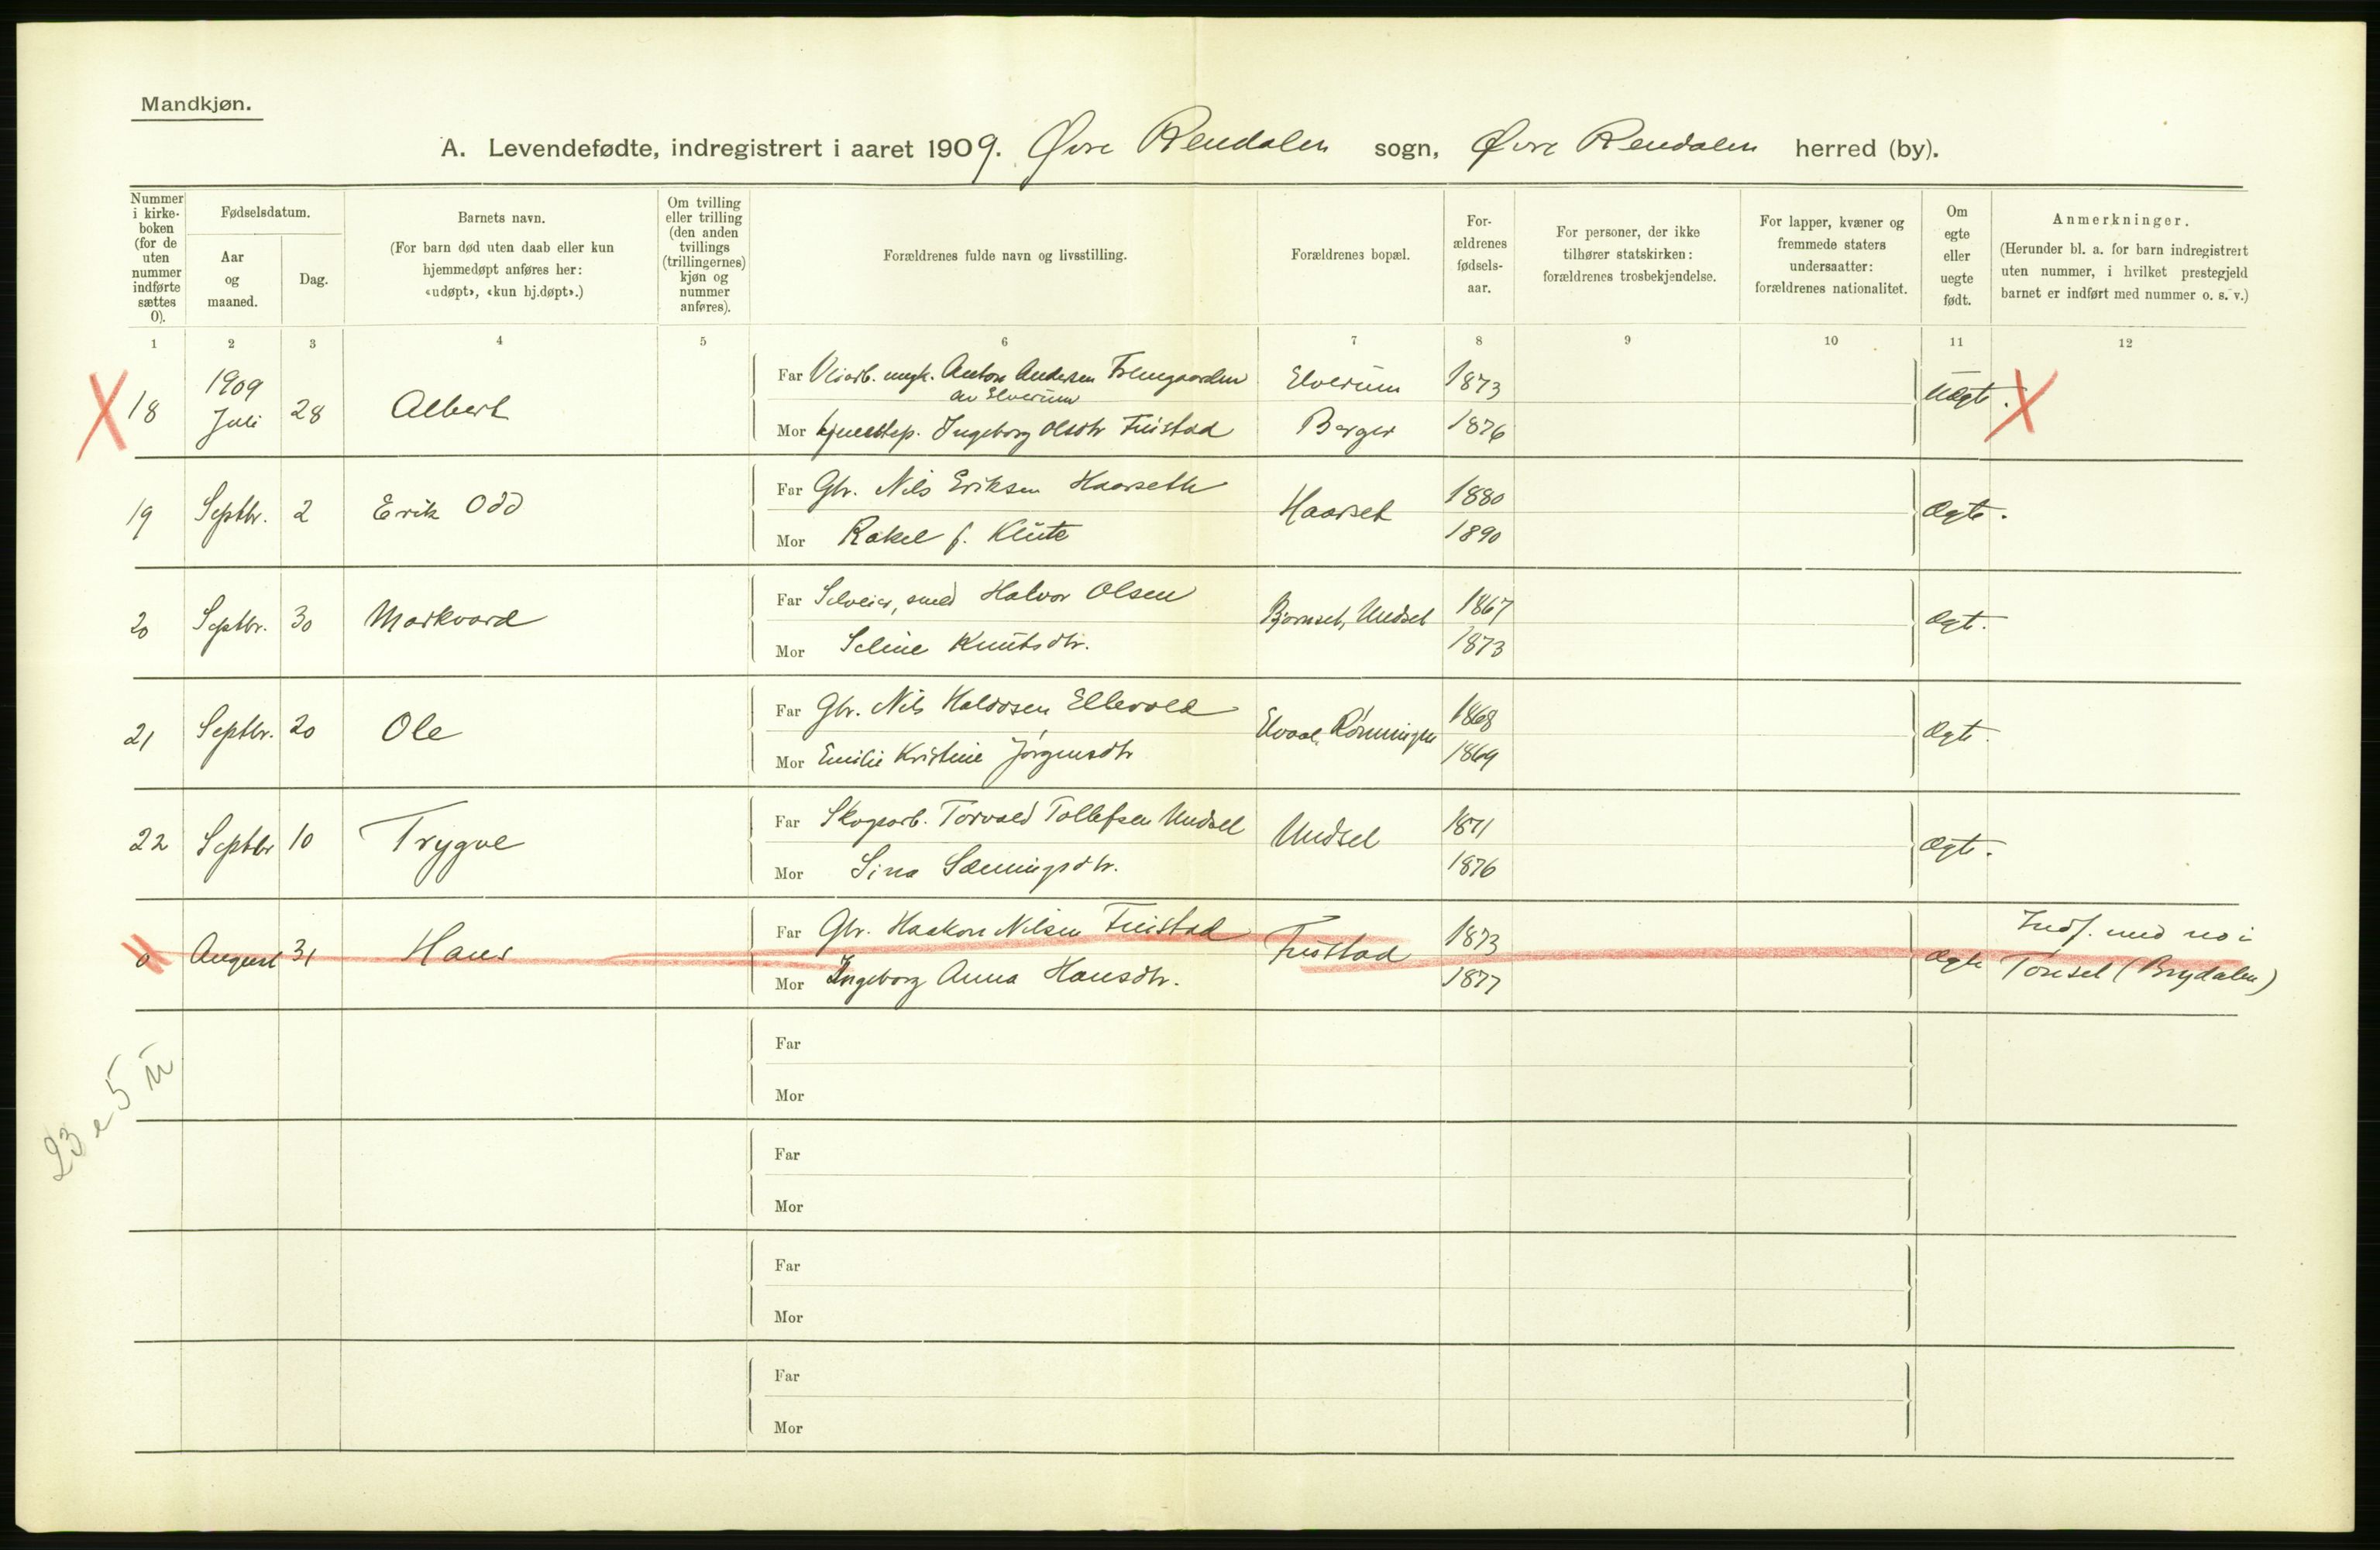 Mandkjøn.
A. Levendefødte, indregistrert i aaret 1909. Øvre Rendalen sogn, Øvre Rendalen herred (by).
Nummer i kirkeboken (for de uten nummer indførte sættes 0).
Fødselsdatum.
Aar og maaned.
Dag.
Barnets navn.
(For barn død uten daab eller kun hjemmedøpt anføres her: «udøpt», «kun hj.døpt».)
Om tvilling eller trilling (den anden tvillings (trillingernes) kjøn og nummer anføres).
Forældrenes fulde navn og livsstilling.
Forældrenes bopæl.
Forældrenes fødselsaar.
For personer, der ikke tilhører statskirken: forældrenes trosbekjendelse.
For lapper, kvæner og fremmede staters undersaatter: forældrenes nationalitet.
Om egte eller uegte født.
Anmerkninger.
(Herunder bl. a. for barn indregistrert uten nummer, i hvilket prestegjeld barnet er indført med nummer o. s. v.)
1 2 3 4 5 6 7 8 9 10 11 12
18 1909 Juli 28 Albert
Far ungk. Anton Andersen av Elverum Elverum 1873
Mor Ingeborg Olsdtr Berger 1876
Uægte.
19 Septbr. 2 Erik Odd
Far Gbr. Nils Eriksen Haarseth Haarset 1880
Mor Rakel f. 1890
Ægte.
20 Septbr. 30 Markvard
Far Selveier, smed Halvor Olsen Bjørnset, Undset 1867
Mor Seline Knutsdtr. 1873
Ægt.
21 Septbr. 20 Ole
Far Gbr. Nils Haldosen Ellevold Elvaal, Rønningen 1868
Mor Emilie Kristine Jørgensdtr 1869
Ægt.
22 Septbr 10 Trygve
Far Skogsarb. Torvald Tollefsen Undset Undset 1871
Mor Sina Sæmingsdtr. 1876
Ægte.
0 August 31 Hans
Far Gbr. Haakon Nilsen Finstad Finstad 1873
Mor Ingeborg Anna Hansdtr. 1877
Ægte Indf. med no i Tønset (Brydalen)
Far
Mor
Far
Mor
Far
Mor
Far
Mor
23 e 5 u